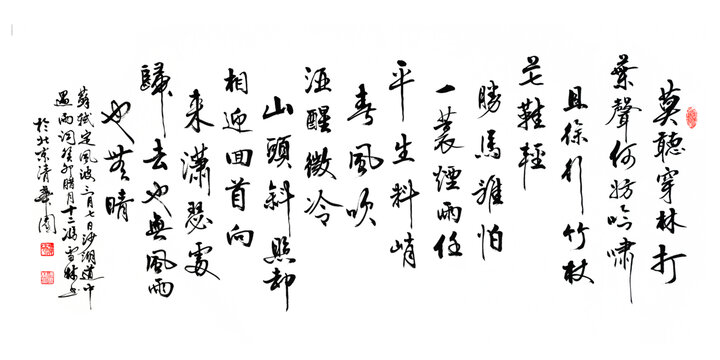 莫聽穿林打
葉聲何妨吟嘯
且徐行竹杖
芒鞋輕
勝馬誰怕
一蓑煙雨任
平生料峭
春風吹
酒醒微冷
山頭斜照却
相迎回首向
来瀟瑟處
歸去也無風雨
也無晴
蘇軾定風波三月七日沙湖道中
遇雨詞癸卯腊月十二馮雪林书
於北京清華園